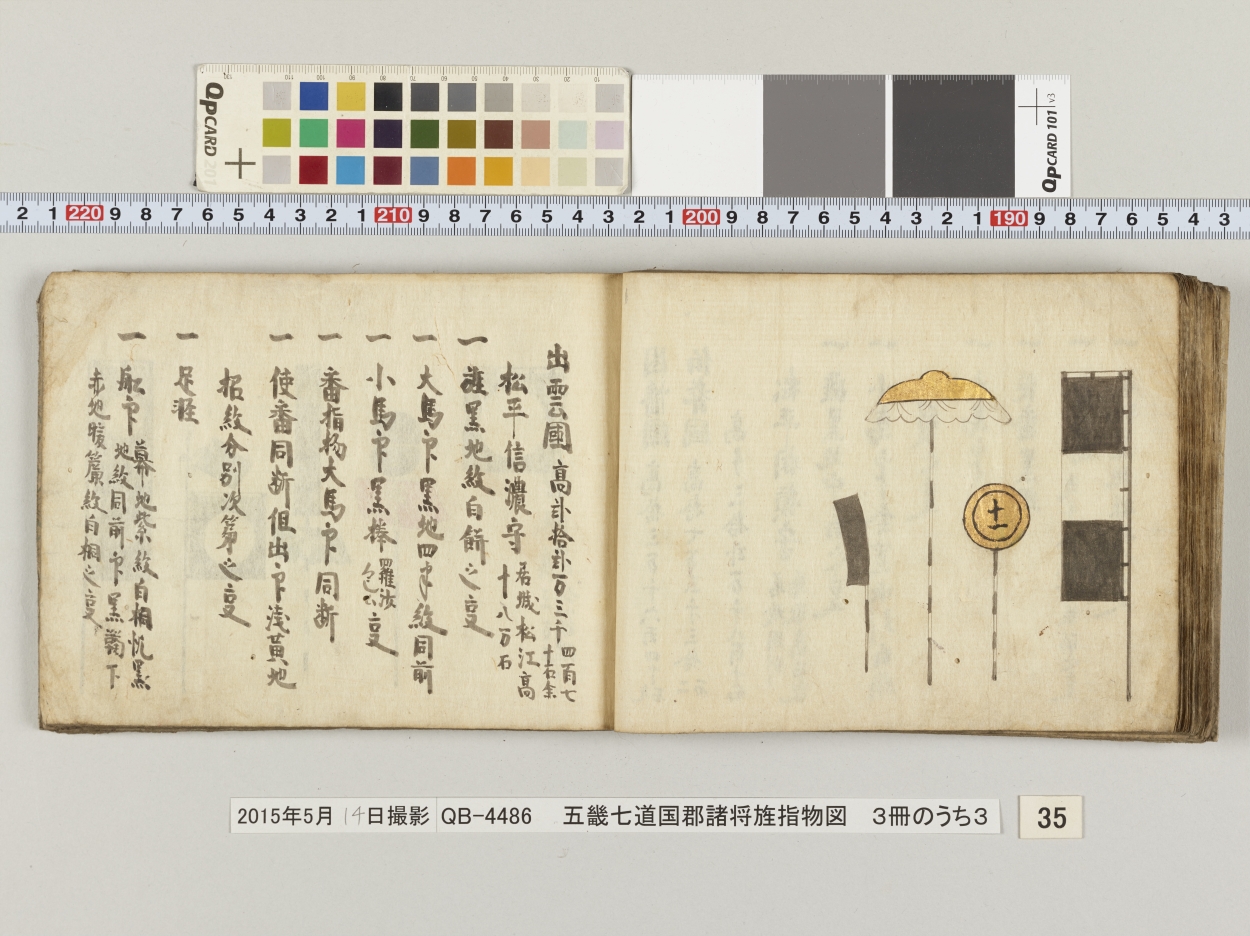 QPCARD 201
QPCARD 101 v3
2 1 220 9 8 7 6 5 4 3 2 1 210 9 8 7 6 5 4 3 2 1 200 9 8 7 6 5 4 3 2 1 190 9 8 7 6 5 4 3
十一
出雲國 高弐拾弐万三千四百七十石余
松平信濃守 居城松江高十八万石
一 旌黒地紋白餅之変
一 大馬印黒地四半紋同前
一 小馬印黒棒
一 番指物大馬印同断
一 使番同断但出印浅黄地
招紋分別次第之変
一 足旌
一 船印 幕地紫紋白桐帆黒地紋同前印黒 下
赤地 紋白桐之変
2015年5月14日撮影 QB-4486 五畿七道国郡諸将旌指物図 3冊のうち3
35